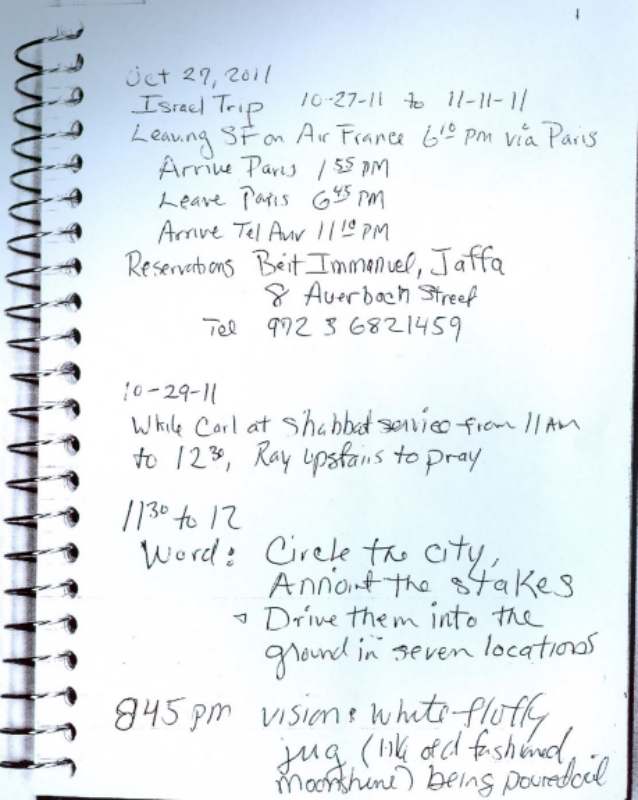 1
Oct 27, 2011
Israel Trip 10-27-11 to 11-11-11
Leaving SF on Air France 6 10 PM via Paris
Arrive Paris 1 55 PM
Leave Paris 6 45 PM
Arrive Tel Aviv 11 10 PM
Reservations Beit Immanuel, Jaffa
8 Auerbach Street
Tel 972 3 6821459
10-29-11
While Carl at Shabbat service from 11 AM
to 12 30, Ray upstairs to pray
11 30 to 12
Word: Circle the city,
Annoint the stakes
Drive them into the
ground in seven locations
845 PM vision: white fluffy
jug (like old fashioned
moonshine) being poured oil